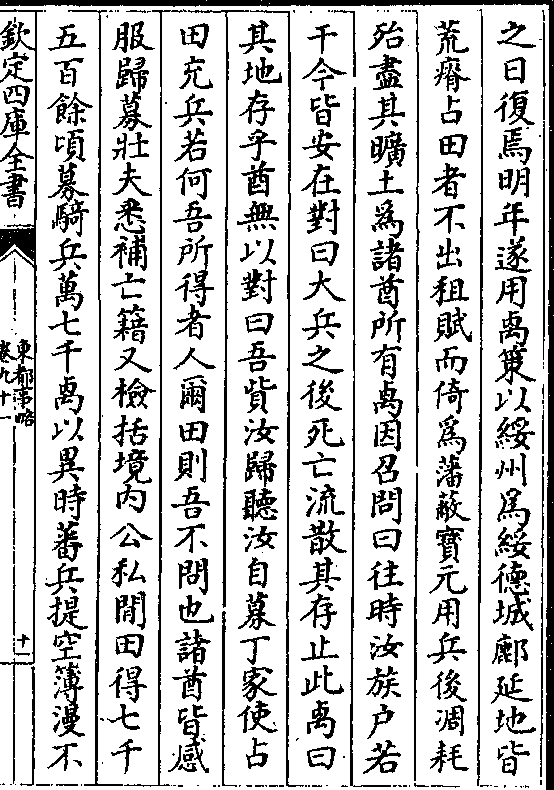 之日復焉明年遂用卨策以綏州爲綏德城鄜延地皆
荒瘠占田者不出租賦而倚爲藩蔽寳元用兵後凋耗
殆盡其曠土爲諸酋所有卨因召問曰往時汝族户若
干今皆安在對曰大兵之後死亡流散其存止此卨曰
其地存乎酋無以對曰吾貲汝歸聽汝自募丁家使占
田充兵若何吾所得者人爾田則吾不問也諸酋皆感
服歸募壯夫悉補亡籍又檢括境内公私閒田得七千
五百餘頃募騎兵萬七千卨以異時蕃兵提空簿漫不
欽定四庫全書
東都事略
卷九十一
十